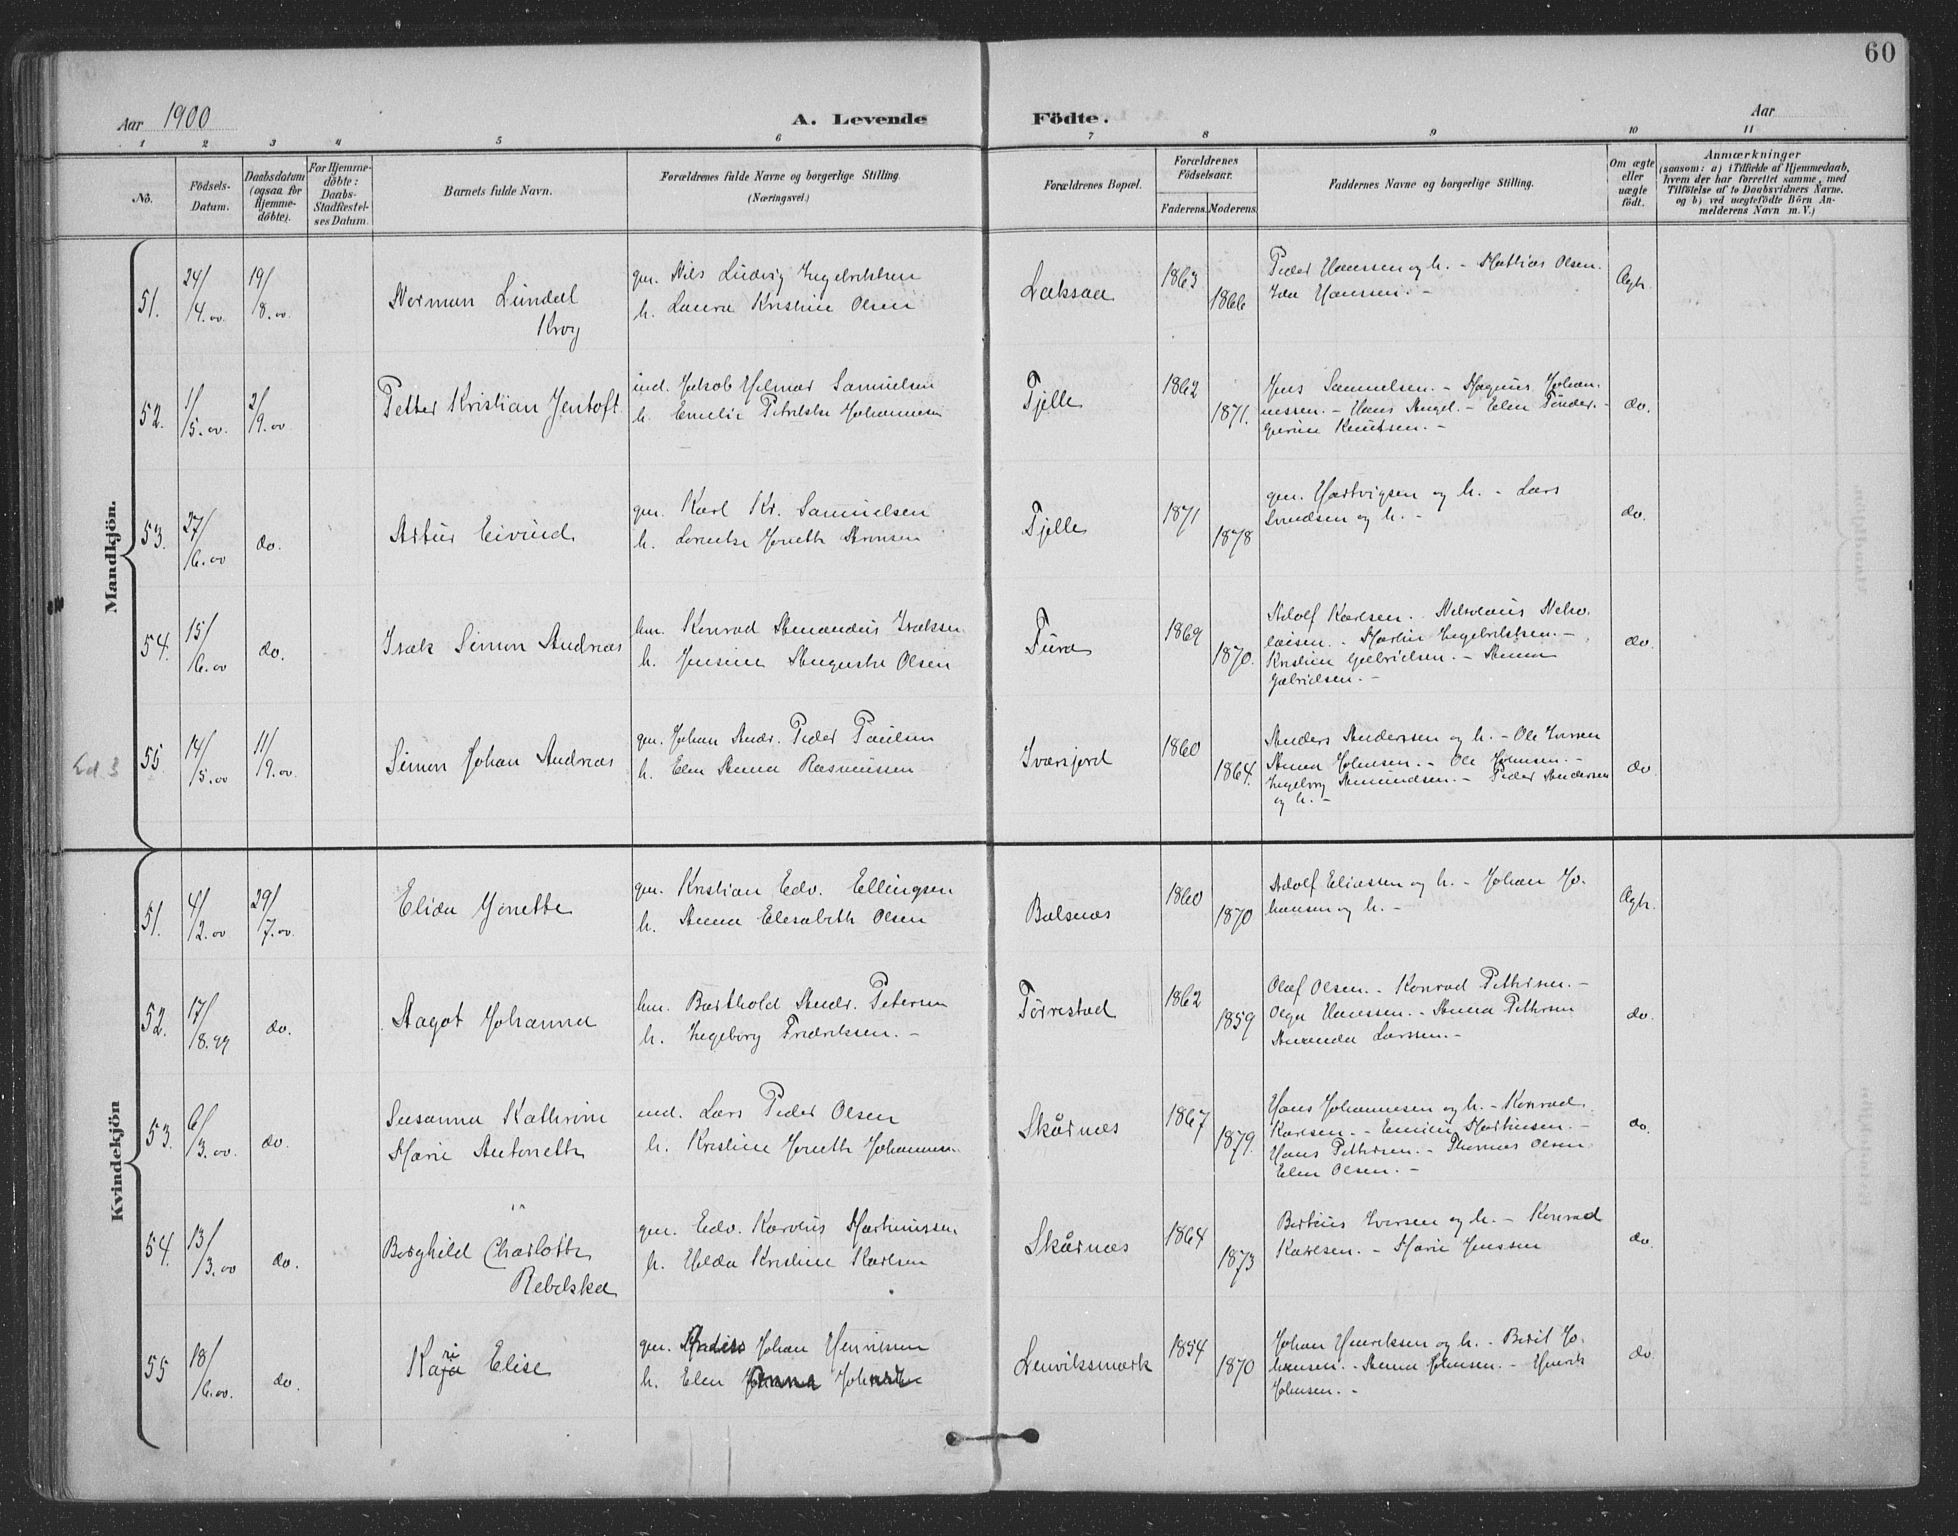 60
Aar 1900
A. Levende Födte.
Aar
1 2 3 4 5 6 7 8 9 10 11
No.
Födsels-
Datum.
Daabsdatum
(ogsaa for
Hjemme-
døbte).
For Hjemme-
døbte:
Daabs-
Stadfestel-
ses Datum.
Barnets fulde Navn.
Forældrenes fulde Navne og borgerlige Stilling.
(Næringsvei.)
Forældrenes Bopæl.
Forældrenes
Födselsaar.
Faderens. Moderens.
Faddernes Navne og borgerlige Stilling.
Om ægte
eller
uægte
födt.
Anmærkninger
(saasom: a) i Tilfælde af Hjemmedaab,
hvem der har forrettet samme, med
Tilföielse af to Daabsvidners Navne.
og b) ved uægtefödte Börn An-
melderens Navn m. V.)
Mandkjön.
51. 24/4.00 19/8.00
Norman Lundal
Krog
gm. Nils Ludvig Ingebriktsen
h. Laura Kristine Olsen
Laksaa
1863
1866
Peder Hanssen og h. - Mathias Olsen.
Ida Hanssen. -
Ægte.
52. 1/5.00 2/9.00
Petter Kristian Jentoft
ind. Jakob Hilmar Samuelsen
h. Emelie Petrikke Johannesen
Tjelle
1862
1871.
Jens Samuelsen. - Magnus Johan-
nessen. - Hans Angel. - Elen Tönder. -
Gurine Knutsen. -
do.
53. 27/6.00 do.
Artur Eivind
gm. Karl Kr. Samuelsen
h. Lorentse Jonette Aronsen
Tjelle
1871
1878
gm. Hartvigsen og h. - Lars
Svendsen og h. -
do.
54. 15/6.00 do.
Isak Simon Andreas
h. Jensine Auguste Olsen
Tura
1869
1870.
Adolf Karlsen. Nikolaus Niko-
laisen. - Martin Ingebriktsen. -
Kristine Gabrielsen. - Anna
Gabrielsen. -
do.
Ld 3
55. 14/5.00 11/9.00
Simon Johan Andreas
gm. Johan Andr. Peder Paulsen
h. Elen Anna Rasmussen
Ivarsjord
1860
1864.
Anders Anderssen og h. - Ole Iversen
Anna Johnsen. - Ole Johnsen. -
Ingeborg Amundsen. - Peder Andersen
og h. -
do.
Kvindekjön
51. 4/2.00 29/7.00
Elida Jonette
gm. Kristian Edv. Ellingsen
h. Anna Elisabeth Olsen
Balsnæs
1860
1870
Adolf Eliassen og h. - Johan Jo-
hansen og h. -
Ægte.
52. 17/8.99 do.
Aagot Johanna
Barthold Andr. Petersen
h. Ingeborg Fredriksen. -
Törrestad
1862
1859
Olaf Olsen. - Konrad Pettersen. -
Olga Hanssen. - Anna Pettersen
Amanda Larssen. -
do.
53. 6/3.00 do.
Susanna Kathrine
Marie Antonette
ind. Lars Peder Olsen
h. Kristine Jonette Johannesen.
Skårnæs
1867
1879.
Hans Johannesen og h. - Konrad
Karlsen. - Emilie Martinsen. -
Hans Pettersen. - Thomas Olsen
Elen Olsen. -
do.
54. 13/3.00 do.
Borghild Charlotte
Rebekka
gm. Edv. Karolius Martinussen
h. Hilda Kristine Karlsen
Skårnæs
1864
1873
Berteus Iversen og h. - Konrad
Karlsen. - Marie Jenssen
do.
55 18/6.00. do.
Kari Elise
gm. Johan Henriksen
h. Elen Anna
Lenviksmark
1854
1870
Johan Henriksen og h. - Berit Jo-
hansen. - Anna Johnsen. - Henrik
Johnsen. -
do.